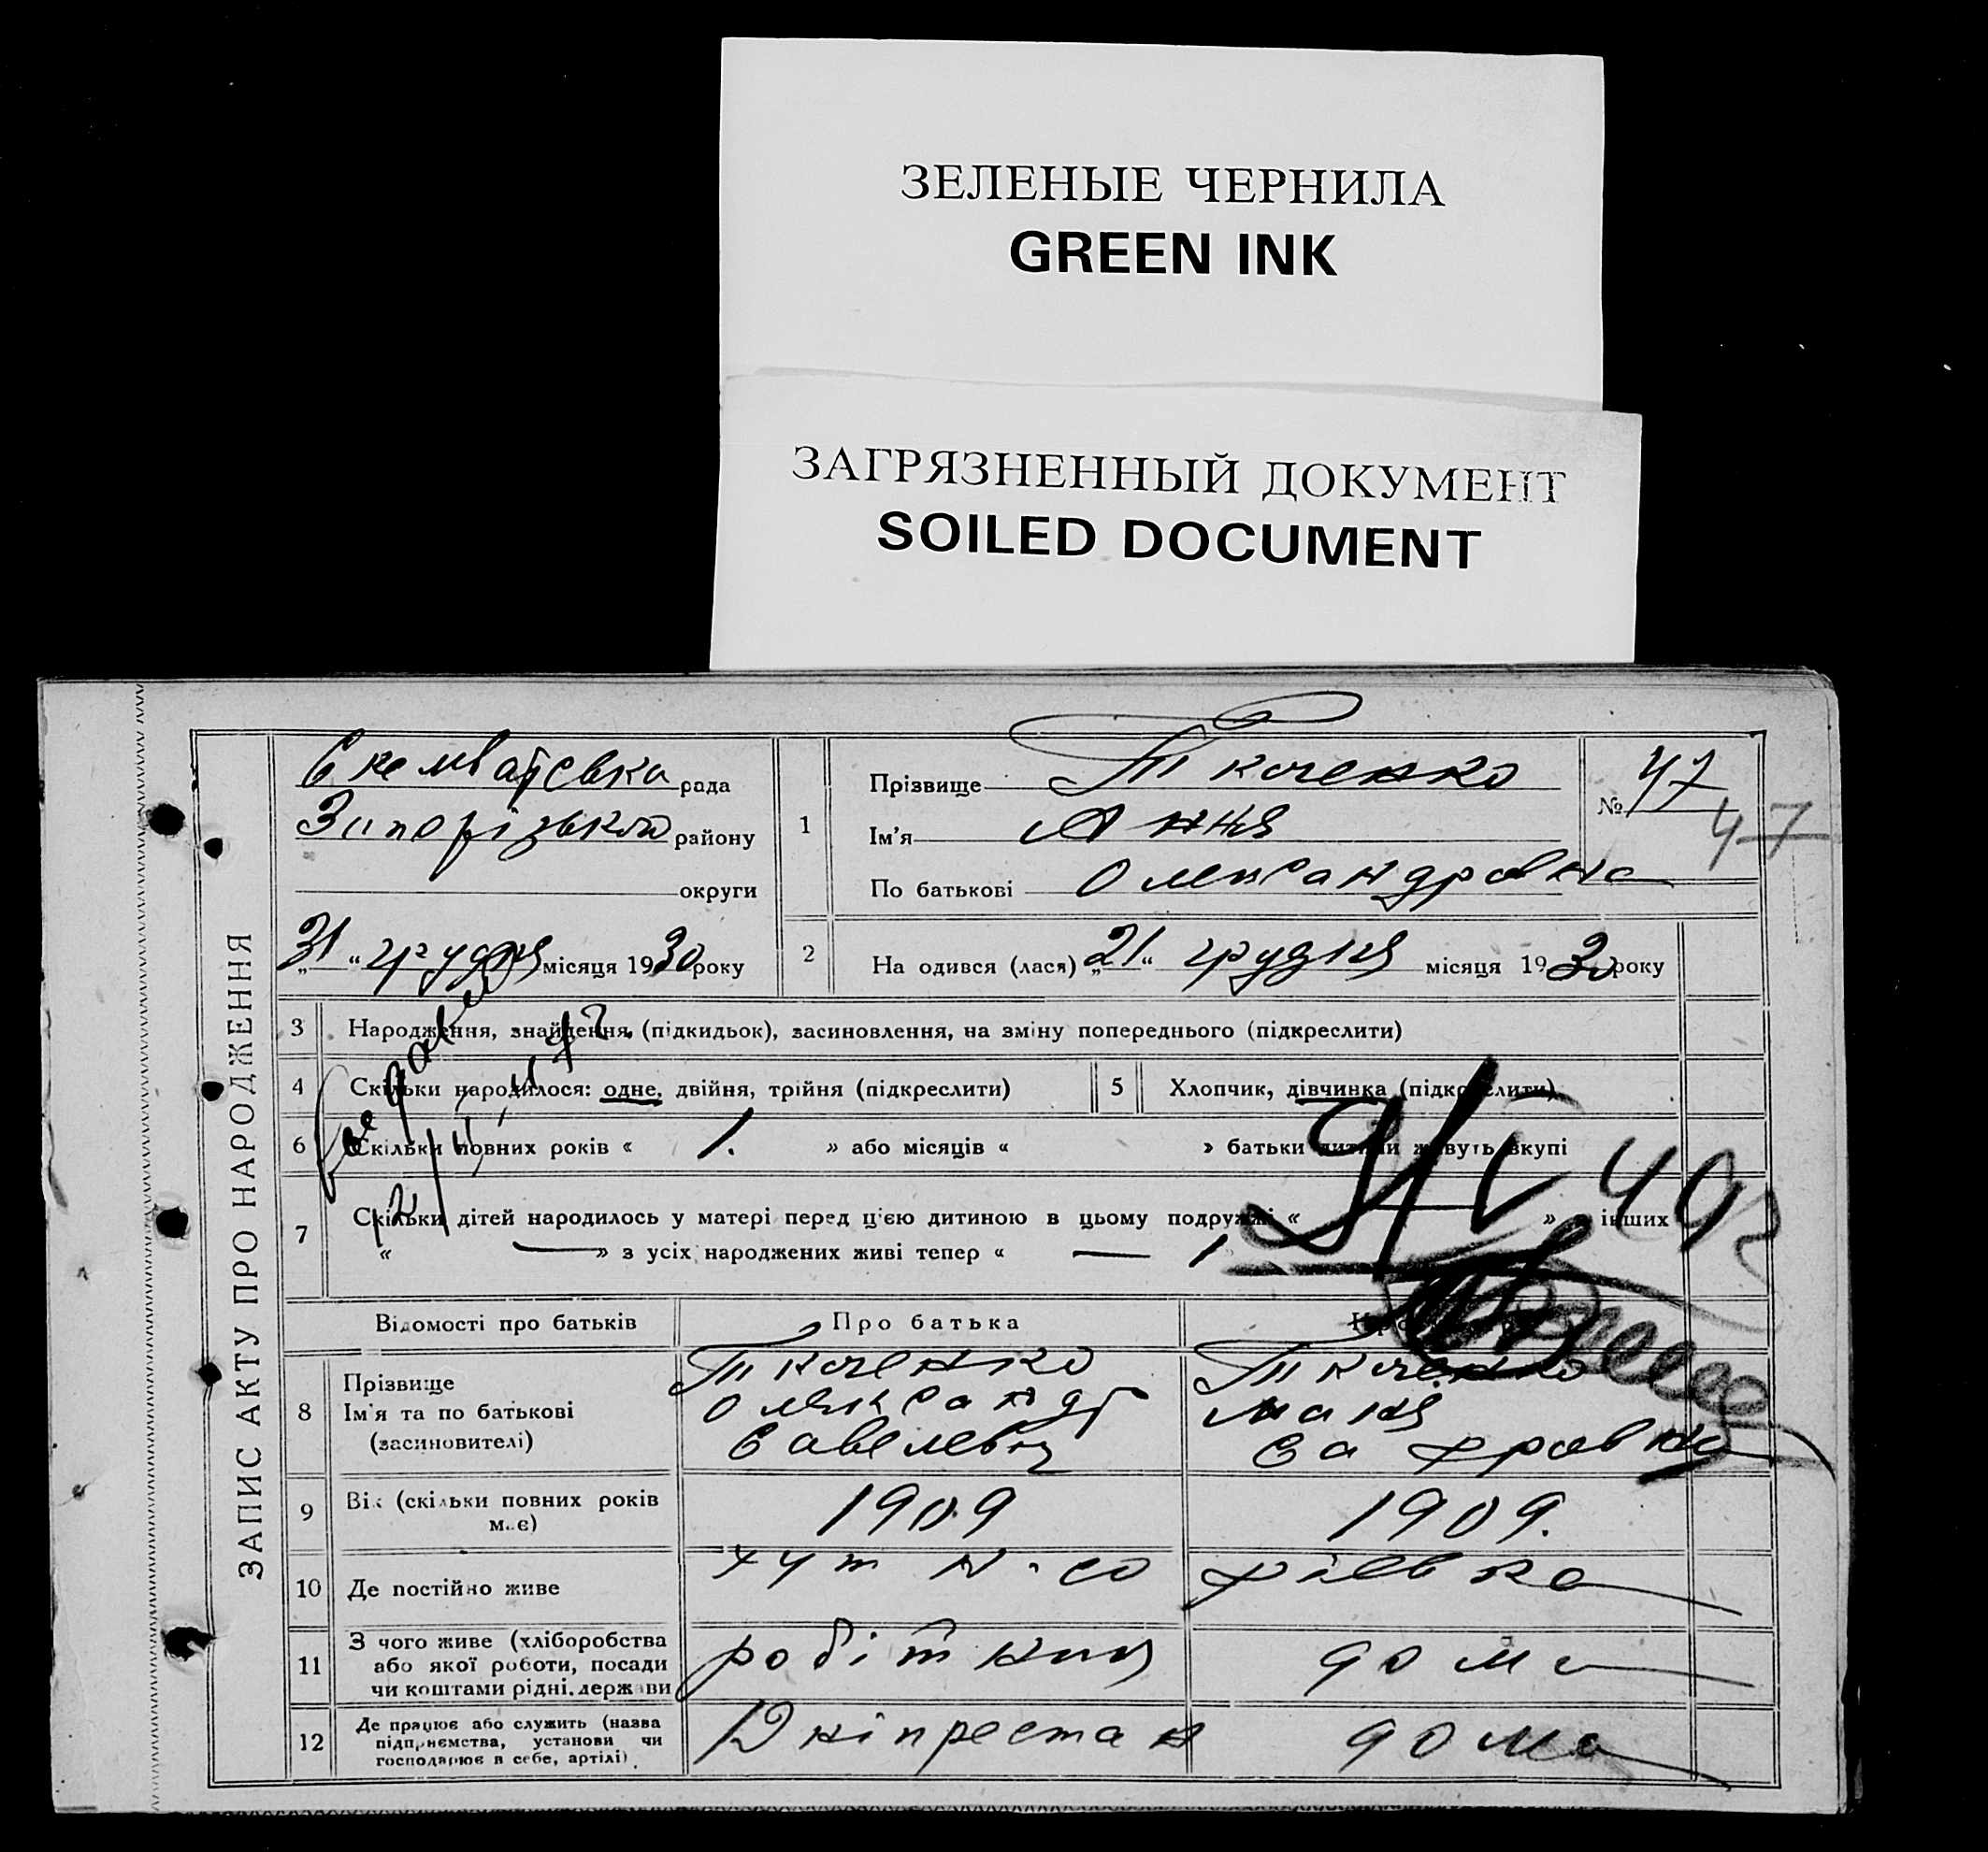 ЗЕЛЕНЫЕ ЧЕРНИЛА
GREEN INK
ЗАГРЯЗНЕННЫЙ ДОКУМЕНТ
SOILED DOCUMENT
ЗАПИС АКТУ ПРО НАРОДЖЕННЯ
рада
району
округи
„31“ грудня місяця 1930 року
1 Прізвище Ткаченко
Ім'я Анна
По батькові Олександровна
№ 47
47
2 На одився (лася) „21“ грудня місяця 1930 року
3 Народження, знайдення, (підкидьок), засиновлення, на зміну попереднього (підкреслити)
4 Скільки народилося: одне, двійня, трійня (підкреслити)
5 Хлопчик, дівчинка (підкреслити)
6 Скільки повних років « 1. » або місяців « » батьки дитини живуть вкупі
7 Скільки дітей народилось у матері перед ц'єю дитиною в цьому подружжі « — » інших
« — » з усіх народжених живі тепер « —
Відомості про батьків
Про батька
8 Прізвище
Ім'я та по батькові
(засиновителі)
Ткаченко
Олександр
Савелевич
Ткаченко
9 Вік (скільки повних років має)
1909
1909.
10 Де постійно живе
хут
11 З чого живе (хліборобства
або якої роботи, посади
чи коштами рідні, держави
робітник
дома
12 Де працює або служить (назва
підприємства, установи чи
господарює в себе, артілі)
дома